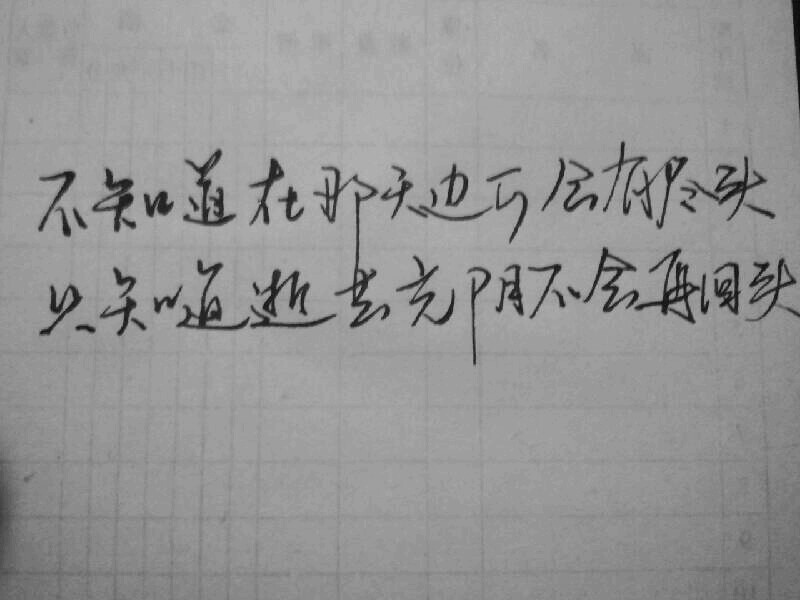 不知道在那天边可会有尽头
只知道逝去光阴不会再回头